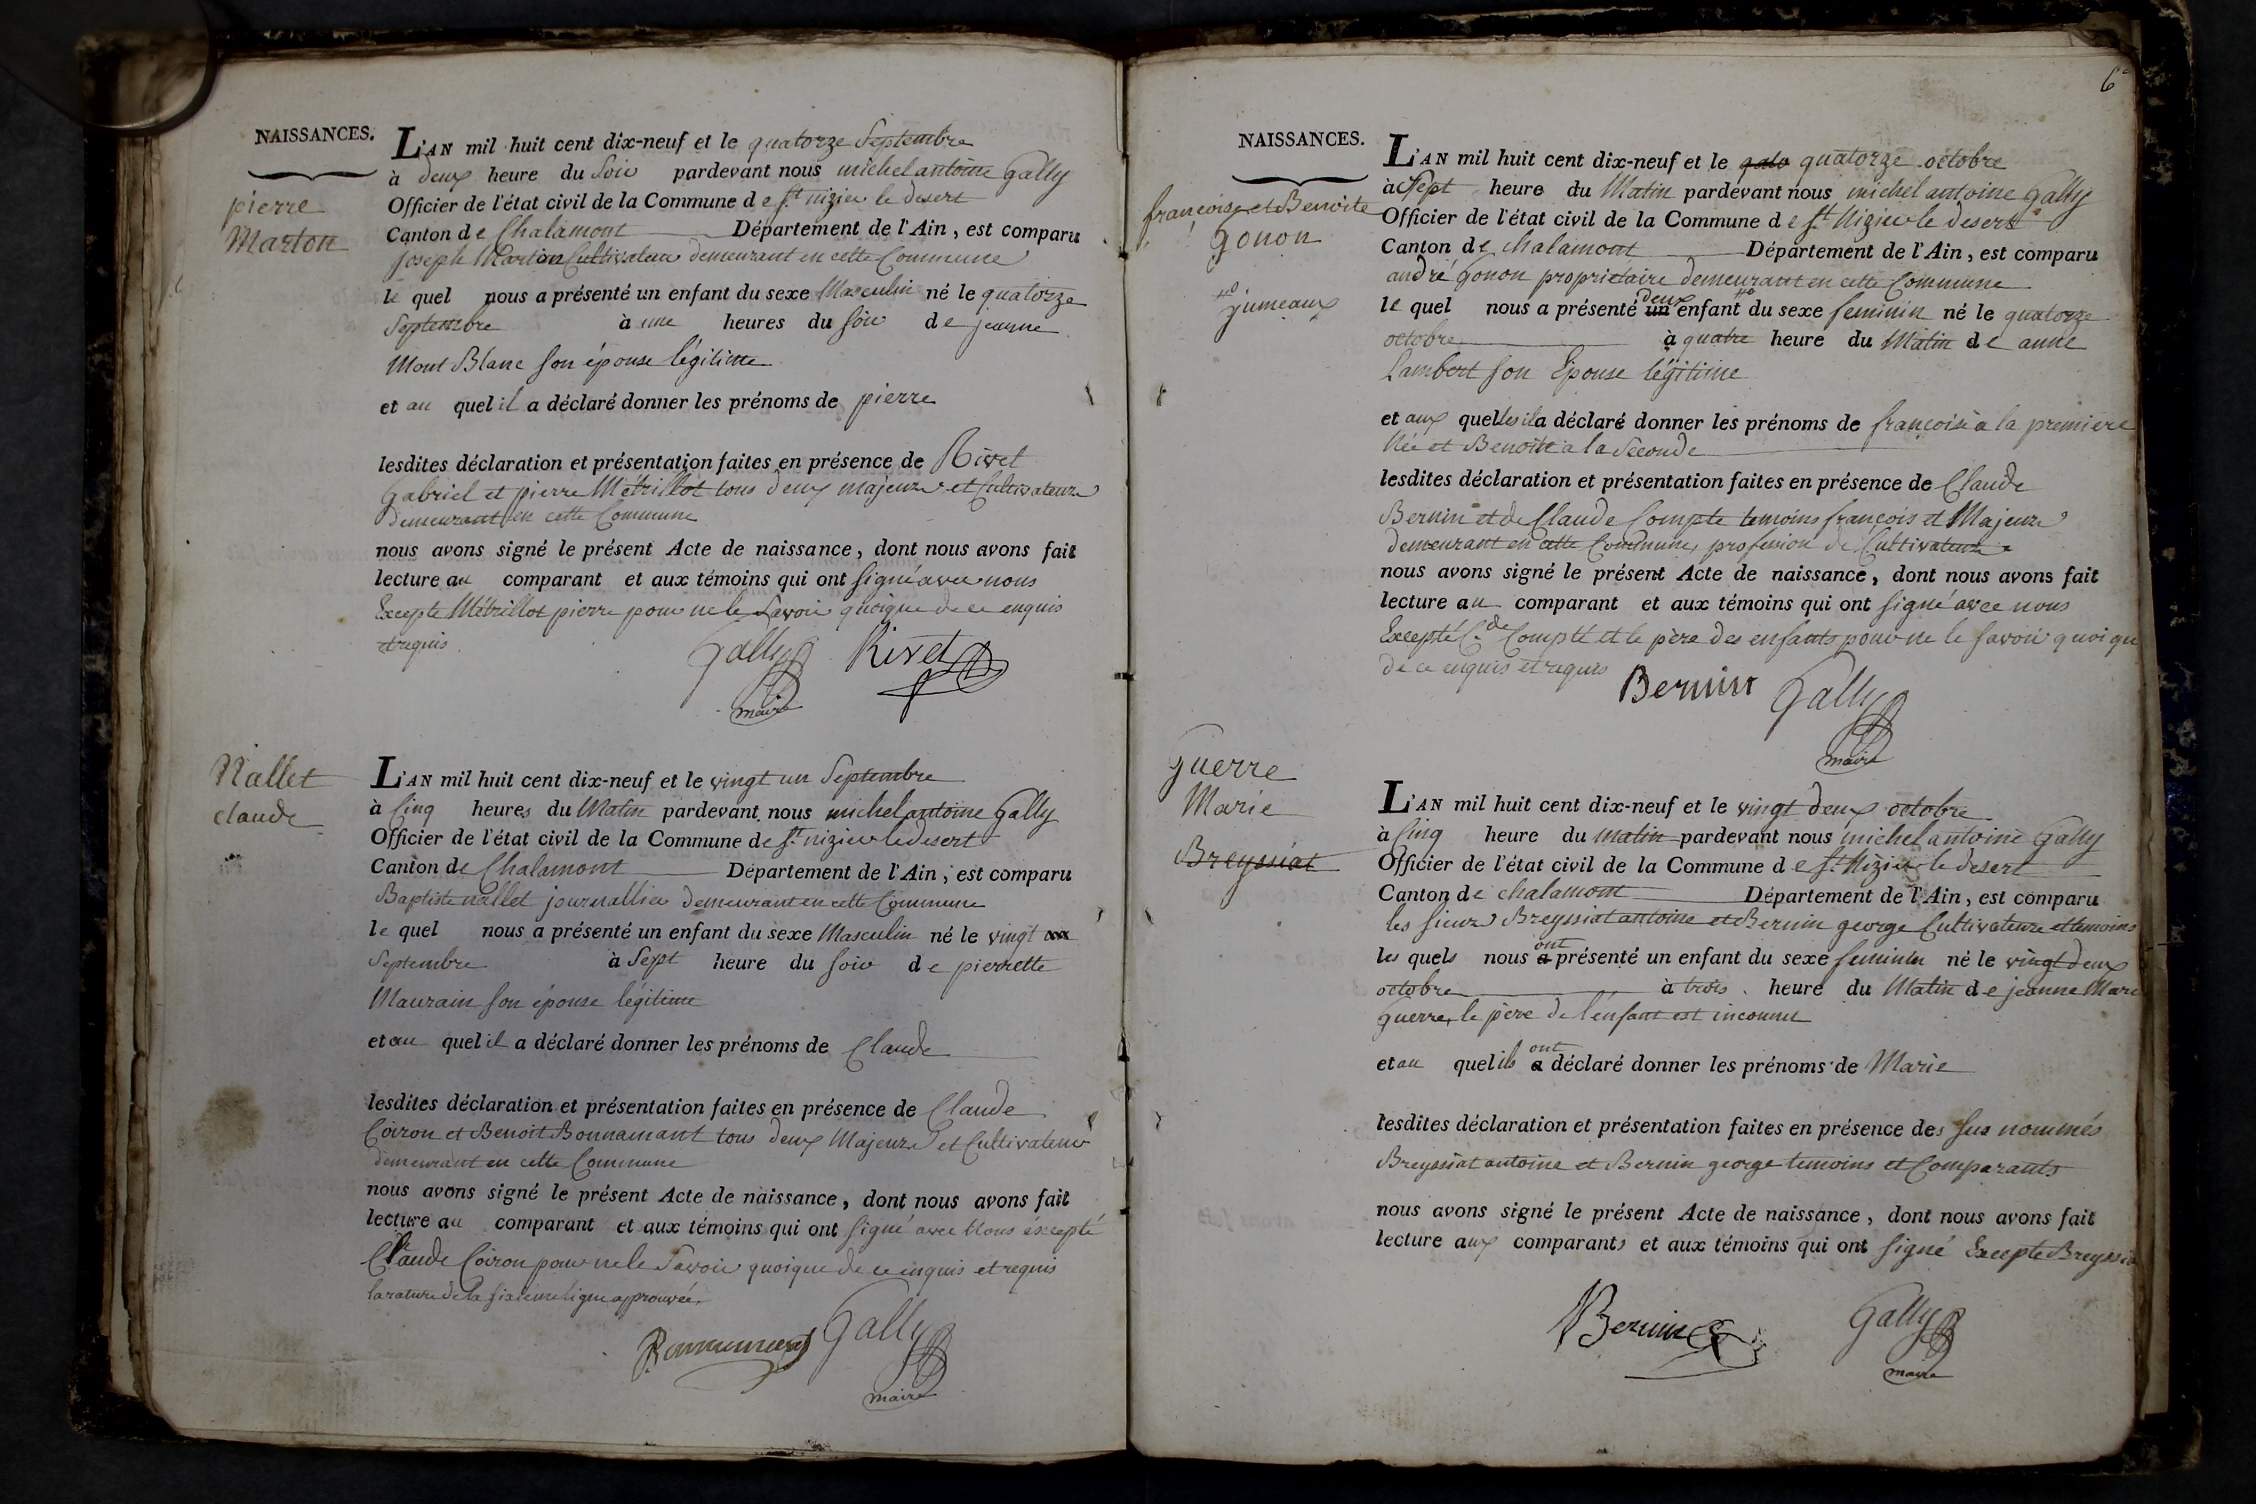 NAISSANCES.
pierre
Marton
L'AN mil huit cent dix-neuf et le quatorze Septembre
à deux heure du Soir pardevant nous michel antoine Gally
Officier de l'état civil de la Commune de St nizier le desert
Canton de Chalamont Département de l'Ain, est comparu
joseph Marton Cultivateur demeurant en cette Commune
le quel nous a présenté un enfant du sexe Masculin né le quatorze
Septembre à une heures du soir de jeanne
Mont Blanc son épouse légitime
et au quel il a déclaré donner les prénoms de pierre
lesdites déclaration et présentation faites en présence de Rivet
Gabriel et pierre Métrillot tous deux majeurs et Cultivateurs
demeurant en cette Commune
nous avons signé le présent Acte de naissance, dont nous avons fait
lecture au comparant et aux témoins qui ont signé avec nous
Excepté Métrillot pierre pour ne le Savoir quoique de ce enquis
et requis
Gally Rivet
maire
Nallet
claude
L'AN mil huit cent dix-neuf et le vingt un Septembre
à Cinq heures du Matin pardevant nous michel antoine Gally
Officier de l'état civil de la Commune de St nizier le desert
Canton de Chalamont Département de l'Ain, est comparu
Baptiste nallet journallier demeurant en cette Commune
le quel nous a présenté un enfant du sexe Masculin né le vingt
Septembre à Sept heure du soir de pierrette
Maurain son épouse légitime
et au quel il a déclaré donner les prénoms de Claude
lesdites déclaration et présentation faites en présence de Claude
Coiron et Benoit Bonnamant tous deux Majeurs et Cultivateur
demeurant en cette Commune
nous avons signé le présent Acte de naissance, dont nous avons fait
lecture au comparant et aux témoins qui ont signé avec Nous éxcepté
Claude Coiron pour ne le Savoir quoique de ce enquis et requis
la rature de la sixieme ligne approuvée.
Gally
maire
6
NAISSANCES.
françoise et Benoite
Gonon
jumeaux
L'AN mil huit cent dix-neuf et le quatorze octobre
à Sept heure du Matin pardevant nous michel antoine Gally
Officier de l'état civil de la Commune de St Nizier le desert
Canton de chalamont Département de l'Ain, est comparu
andré Gonon propriétaire demeurant en cette Commune
le quel nous a présenté un deux enfant du sexe feminin né le quatorze
octobre à quatre heure du Matin de anne
Lambert son Epouse légitime
et aux quelles il a déclaré donner les prénoms de françoise a la premiere
Née et Benoite a la Seconde
lesdites déclaration et présentation faites en présence de Claude
Bernin et de Claude Compte temoins françois et Majeurs
demeurant en cette Commune, profession de Cultivateurs
nous avons signé le présent Acte de naissance, dont nous avons fait
lecture au comparant et aux témoins qui ont signé avec nous
Excepté C.de Compte et le père des enfants pour ne le savoir quoi que
de ce enquis et requis
Bernin Gally
maire
Guerre
Marie
Breyssiat
L'AN mil huit cent dix-neuf et le vingt deux octobre
à Cinq heure du matin pardevant nous michel antoine Gally
Officier de l'état civil de la Commune de St Nizier le desert
Canton de chalamont Département de l'Ain, est comparu
les sieurs Breyssiat antoine et Bernin george Cultivateurs et temoins
les quels nous a ont présenté un enfant du sexe feminin né le vingt deux
octobre à trois heure du Matin de jeanne Marie
Guerre, le père de l'énfant est inconnu
et au quel ils a ont déclaré donner les prénoms de Marie
lesdites déclaration et présentation faites en présence des sus nommés
Breyssiat antoine et Bernin george temoins et Comparants
nous avons signé le présent Acte de naissance, dont nous avons fait
lecture aux comparants et aux témoins qui ont signé Excepté Breyssiat
Bernin Gally
maire